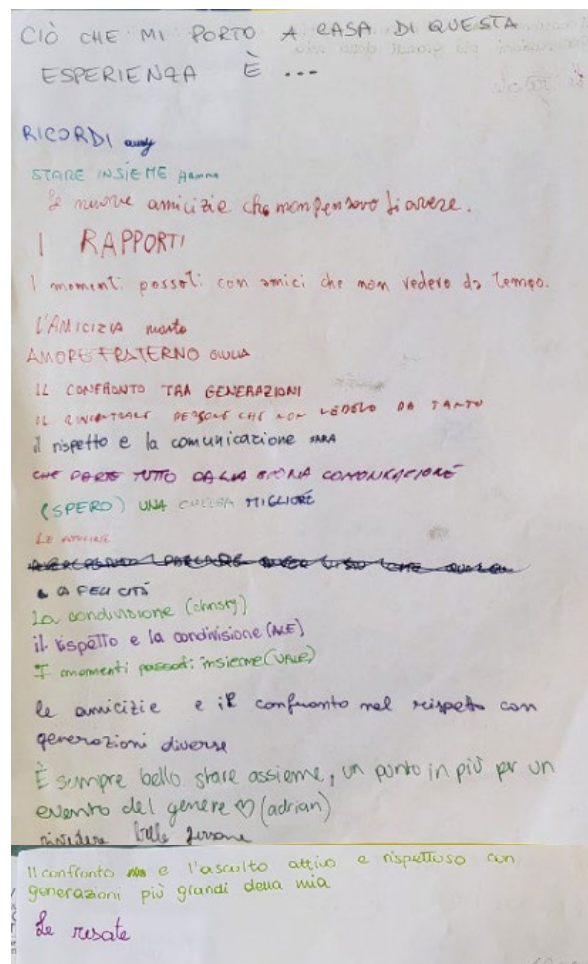 CIÒ CHE MI PORTO A CASA DI QUESTA
ESPERIENZA È ...
RICORDI
STARE INSIEME
le nuove amicizie che non pensavo di avere.
I RAPPORTI
I momenti passati con amici che non vedevo da tempo.
L'AMICIZIA
AMORE FRATERNO GIULIA
IL CONFRONTO TRA GENERAZIONI
IL RINCONTRARE PERSONE CHE NON VEDEVO DA TANTO
il rispetto e la comunicazione SARA
CHE PARTE TUTTO DALLA BUONA COMUNICAZIONE
(SPERO) UNA CHIESA MIGLIORE
LE
LA FELICITÀ
La condivisione (chrisry)
il rispetto e la condivisione (ALE)
I momenti passati insieme (VALE)
le amicizie e il confronto nel rispetto con
generazioni diverse
È sempre bello stare assieme, un punto in più per un
evento del genere ♡ (adrian)
rivedere belle persone
Il confronto e l'ascolto attivo e rispettoso con
generazioni più grandi della mia
Le risate